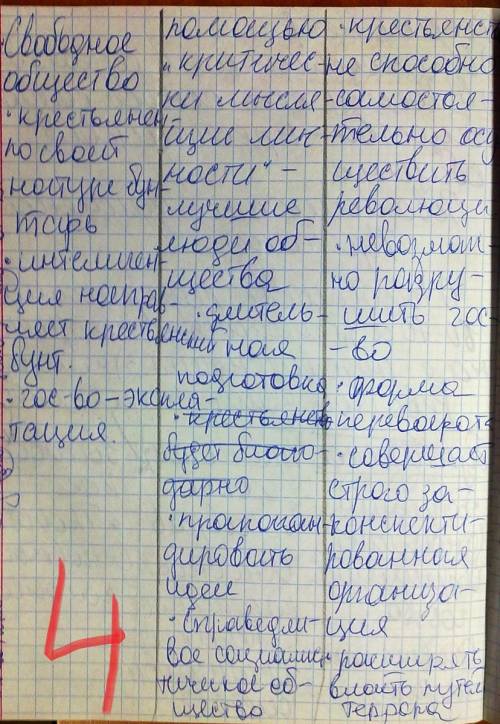 Свободное
общество
·крестьянен
по своей
натуре бун-
тарь
·интеллиген-
ция направ-
ляет крестьянский
бунт.
·гос-во-экспла-
тация.
помощью
"критичес-
ки мысля-
щие лич-
ности" -
лучшие
люди об-
щества
·длитель-
ная
подготовка
·крестьянст
будет благо-
дарно
·пропоган-
дировать
идеи
·справедли-
вое социалис-
тическое об-
щество
·крестьянст
не способно
самостоя-
тельно осу
ществить
революци
·невозмож-
но разру-
шить гос-
-во
·форма
переворота
·совершает
строго за-
конспекти-
рованная
организа-
ция
·расширять
власть путем
террора
4